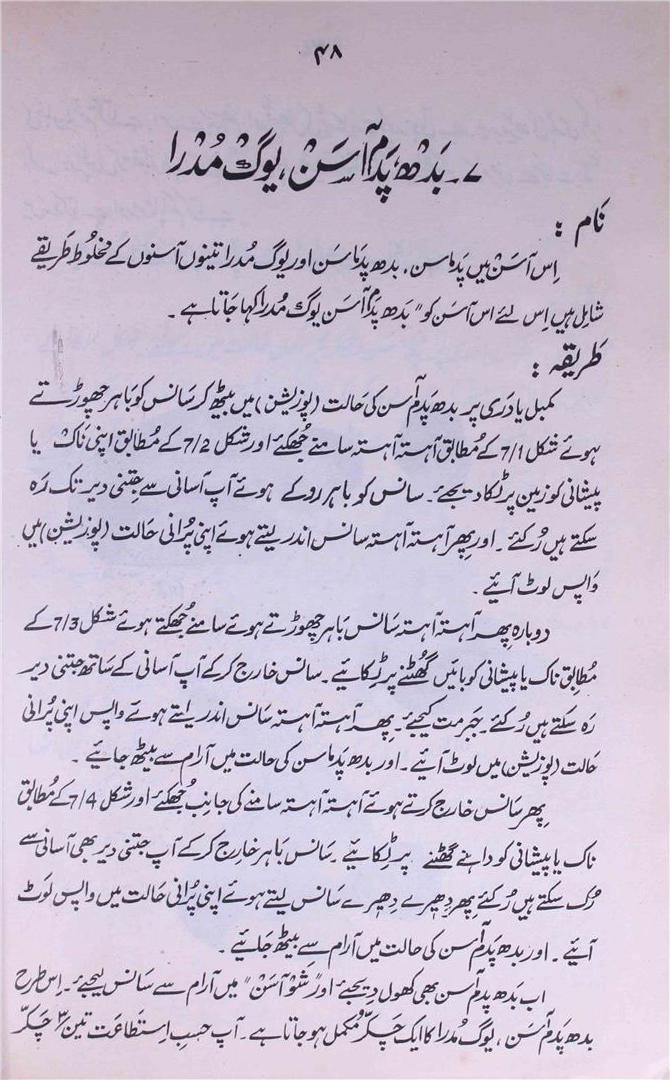 ۴۸
۷۔ بَدْھ پَدَم آسَن، یوگ مُدْرا
نَام :
اِس آسَن میں پَدماسن، بدھ پَدماسَن اور یوگ مُدرا تینوں آسنوں کے مخلُوط طَریقے
شامِل ہیں اِس لئے اس آسَن کو "بَدھ پدَم آسَن یوگ مُدرا کہا جَاتا ہے ۔
طَریقہ :
کمبل یا دَری پر بدھ پدَم آسن کی حالت (پوزیشن) میں بیٹھ کر سانس کو بَاہر چھوڑتے
ہوئے شکل 7/1 کے مُطابق آہستہ آہستہ سامنے جُھکئے اور شکل 7/2 کے مُطابق اپنی ناک یا
پیشانی کو زمین پر ٹِکا دیجئے۔ سانس کو باہر روکے ہوئے آپ آسانی سے جتنی دیر تک رَہ
سکتے ہیں رُکئے ۔ اور پِھر آہستہ آہستہ سانس اندر لیتے ہوئے اپنی پُرانی حالت (پوزیشن) میں
وَاپس لوٹ آئیے ۔
دوبارہ پِھر آہستہ آہستہ سَانس باہر چھوڑتے ہوئے سامنے جُھکتے ہوئے شکل 7/3 کے
مُطابق ناک یا پیشانی کو بائیں گھُٹنے پر ٹِکائیے ۔ سانس خارج کرکے آپ آسانی کے ساتھ جتنی دیر
رَہ سکتے ہیں رُکئے ۔ جبر مت کیجیے ۔ پِھر آہستہ آہستہ سَانس اندر لیتے ہوئے واپس اپنی پُرانی
حالت (پوزیشن) میں لوٹ آئیے ۔ اور بدھ پدَماسن کی حالت میں آرام سے بیٹھ جائیے ۔
پِھر سَانس خارج کرتے ہوئے آہستہ آہستہ سَامنے کی جانب جُھکئے اور شکل 7/4 کے مُطابق
ناک یا پیشانی کو داہنے گھٹنے پر ٹِکائیے ۔ سَانس باہر خارج کرکے آپ جتنی دیر بھی آسانی سے
رُک سکتے ہیں رُکئے پِھر دِھیرے دِھیرے سَانس لیتے ہوئے اپنی پُرانی حالت میں واپس لَوٹ
آئیے ۔ اور بَدھ پدَم آسن کی حالت میں آرام سے بیٹھ جَائیے ۔
اب بَدھ پدَم آسن بھی کھول دیجئے اور "شوآسَن" میں آرام سے سَانس لیجئے ۔ اِس طرح
بدھ پَدَم آسَن، یوگ مُدرا کا ایک چَکّر مُکمل ہوجاتا ہے ۔ آپ حسبِ اِستطاعت تین ۳ چَکّر